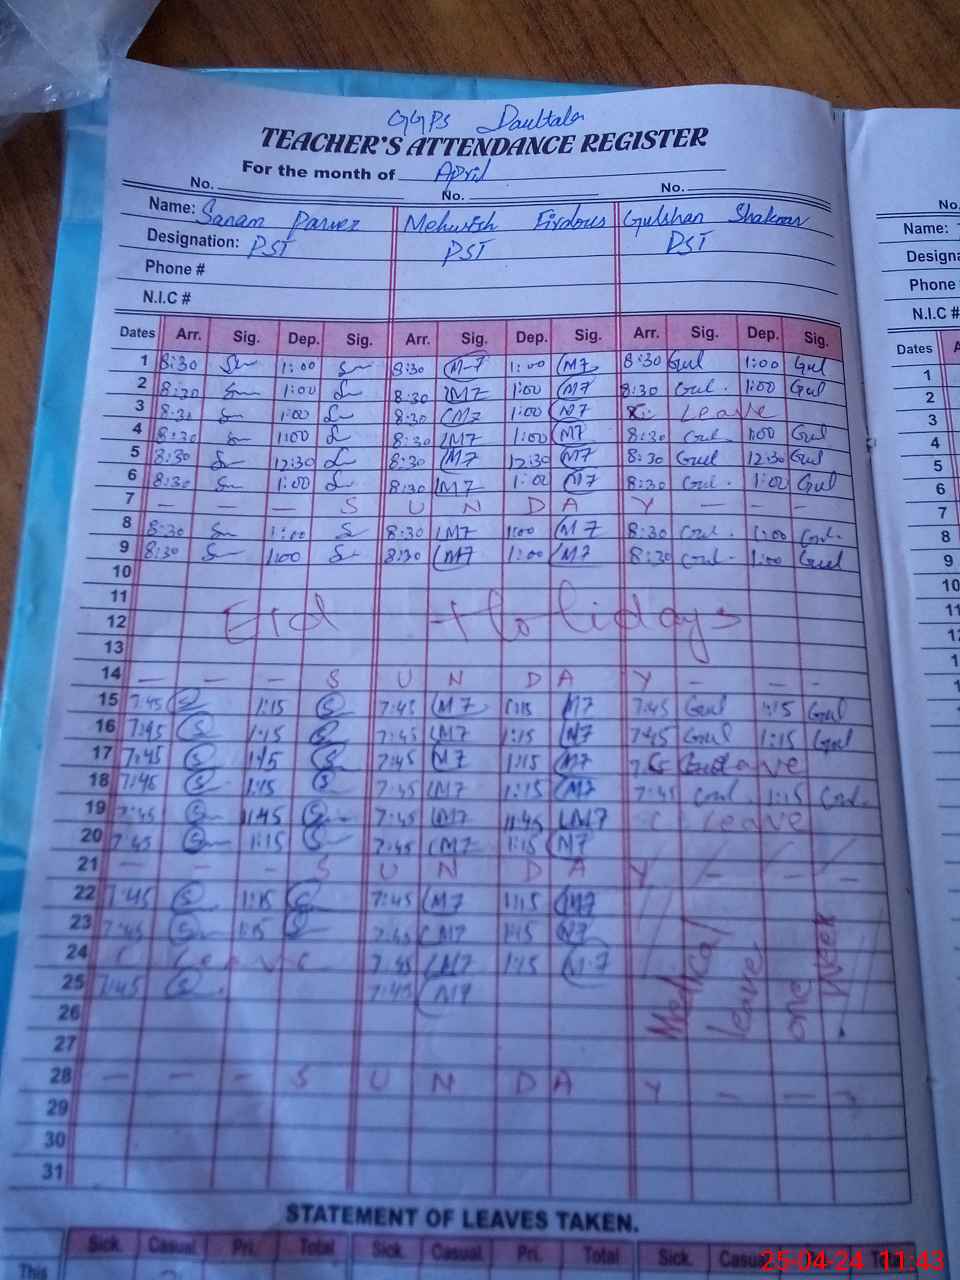 GGPS Daultala
TEACHER'S ATTENDANCE REGISTER
For the month of April
No. No. No. No.
Name: Sanam Parvez Mehwish Firdous Gulshan Shakoor Name:
Designation: PST PST PST Designa
Phone # Phone
N.I.C # N.I.C #
Dates Arr. Sig. Dep. Sig. Arr. Sig. Dep. Sig. Arr. Sig. Dep. Sig. Dates A
1 8:30 1:00 8:30 M7 1:00 M7 8:30 Gul 1:00 Gul 1
2 8:30 1:00 8:30 M7 1:00 M7 8:30 Gul. 1:00 Gul 2
3 8:30 1:00 8:30 M7 1:00 M7 Leave 3
4 8:30 1:00 8:30 M7 1:00 M7 8:30 Gul. 1:00 Gul 4
5 8:30 12:30 8:30 M7 12:30 M7 8:30 Gul 12:30 Gul 5
6 8:30 1:00 8:30 M7 1:00 M7 8:30 Gul. 1:00 Gul 6
7 — — — S U N D A Y — — - 7
8 8:30 1:00 8:30 M7 1:00 M7 8:30 Gul. 1:00 Gul. 8
9 8:30 1:00 8:30 M7 1:00 M7 8:30 Gul. 1:00 Gul 9
10 10
11 11
12 Eid Holidays
13
14 — — — S U N D A Y — — -
15 7:45 S 1:15 S 7:45 M7 1:15 M7 7:45 Gul 1:15 Gul
16 7:45 S 1:15 S 7:45 M7 1:15 M7 7:45 Gul 1:15 Gul
17 7:45 S 1:15 S 7:45 M7 1:15 M7 Leave
18 7:45 S 1:15 S 7:45 M7 1:15 M7 7:45 Gul. 1:15 Gul.
19 7:45 S 11:45 S 7:45 M7 11:45 M7 C Leave
20 7:45 S 1:15 S 7:45 M7 1:15 M7
21 — - - S U N D A Y — — —
22 7:45 S 1:15 S 7:45 M7 1:15 M7
23 7:45 S 1:15 S 7:45 M7 1:15 M7
24 C Leave 7:45 M7 1:15 M7
25 7:45 S. 7:45 M7
Medical leave one week
26
27
28 — — — S U N D A Y — — -
29
30
31
STATEMENT OF LEAVES TAKEN.
Sick. Casual. Pri. Total Sick. Casual. Pri. Total Sick. Casu
This
25-04-24 11:43